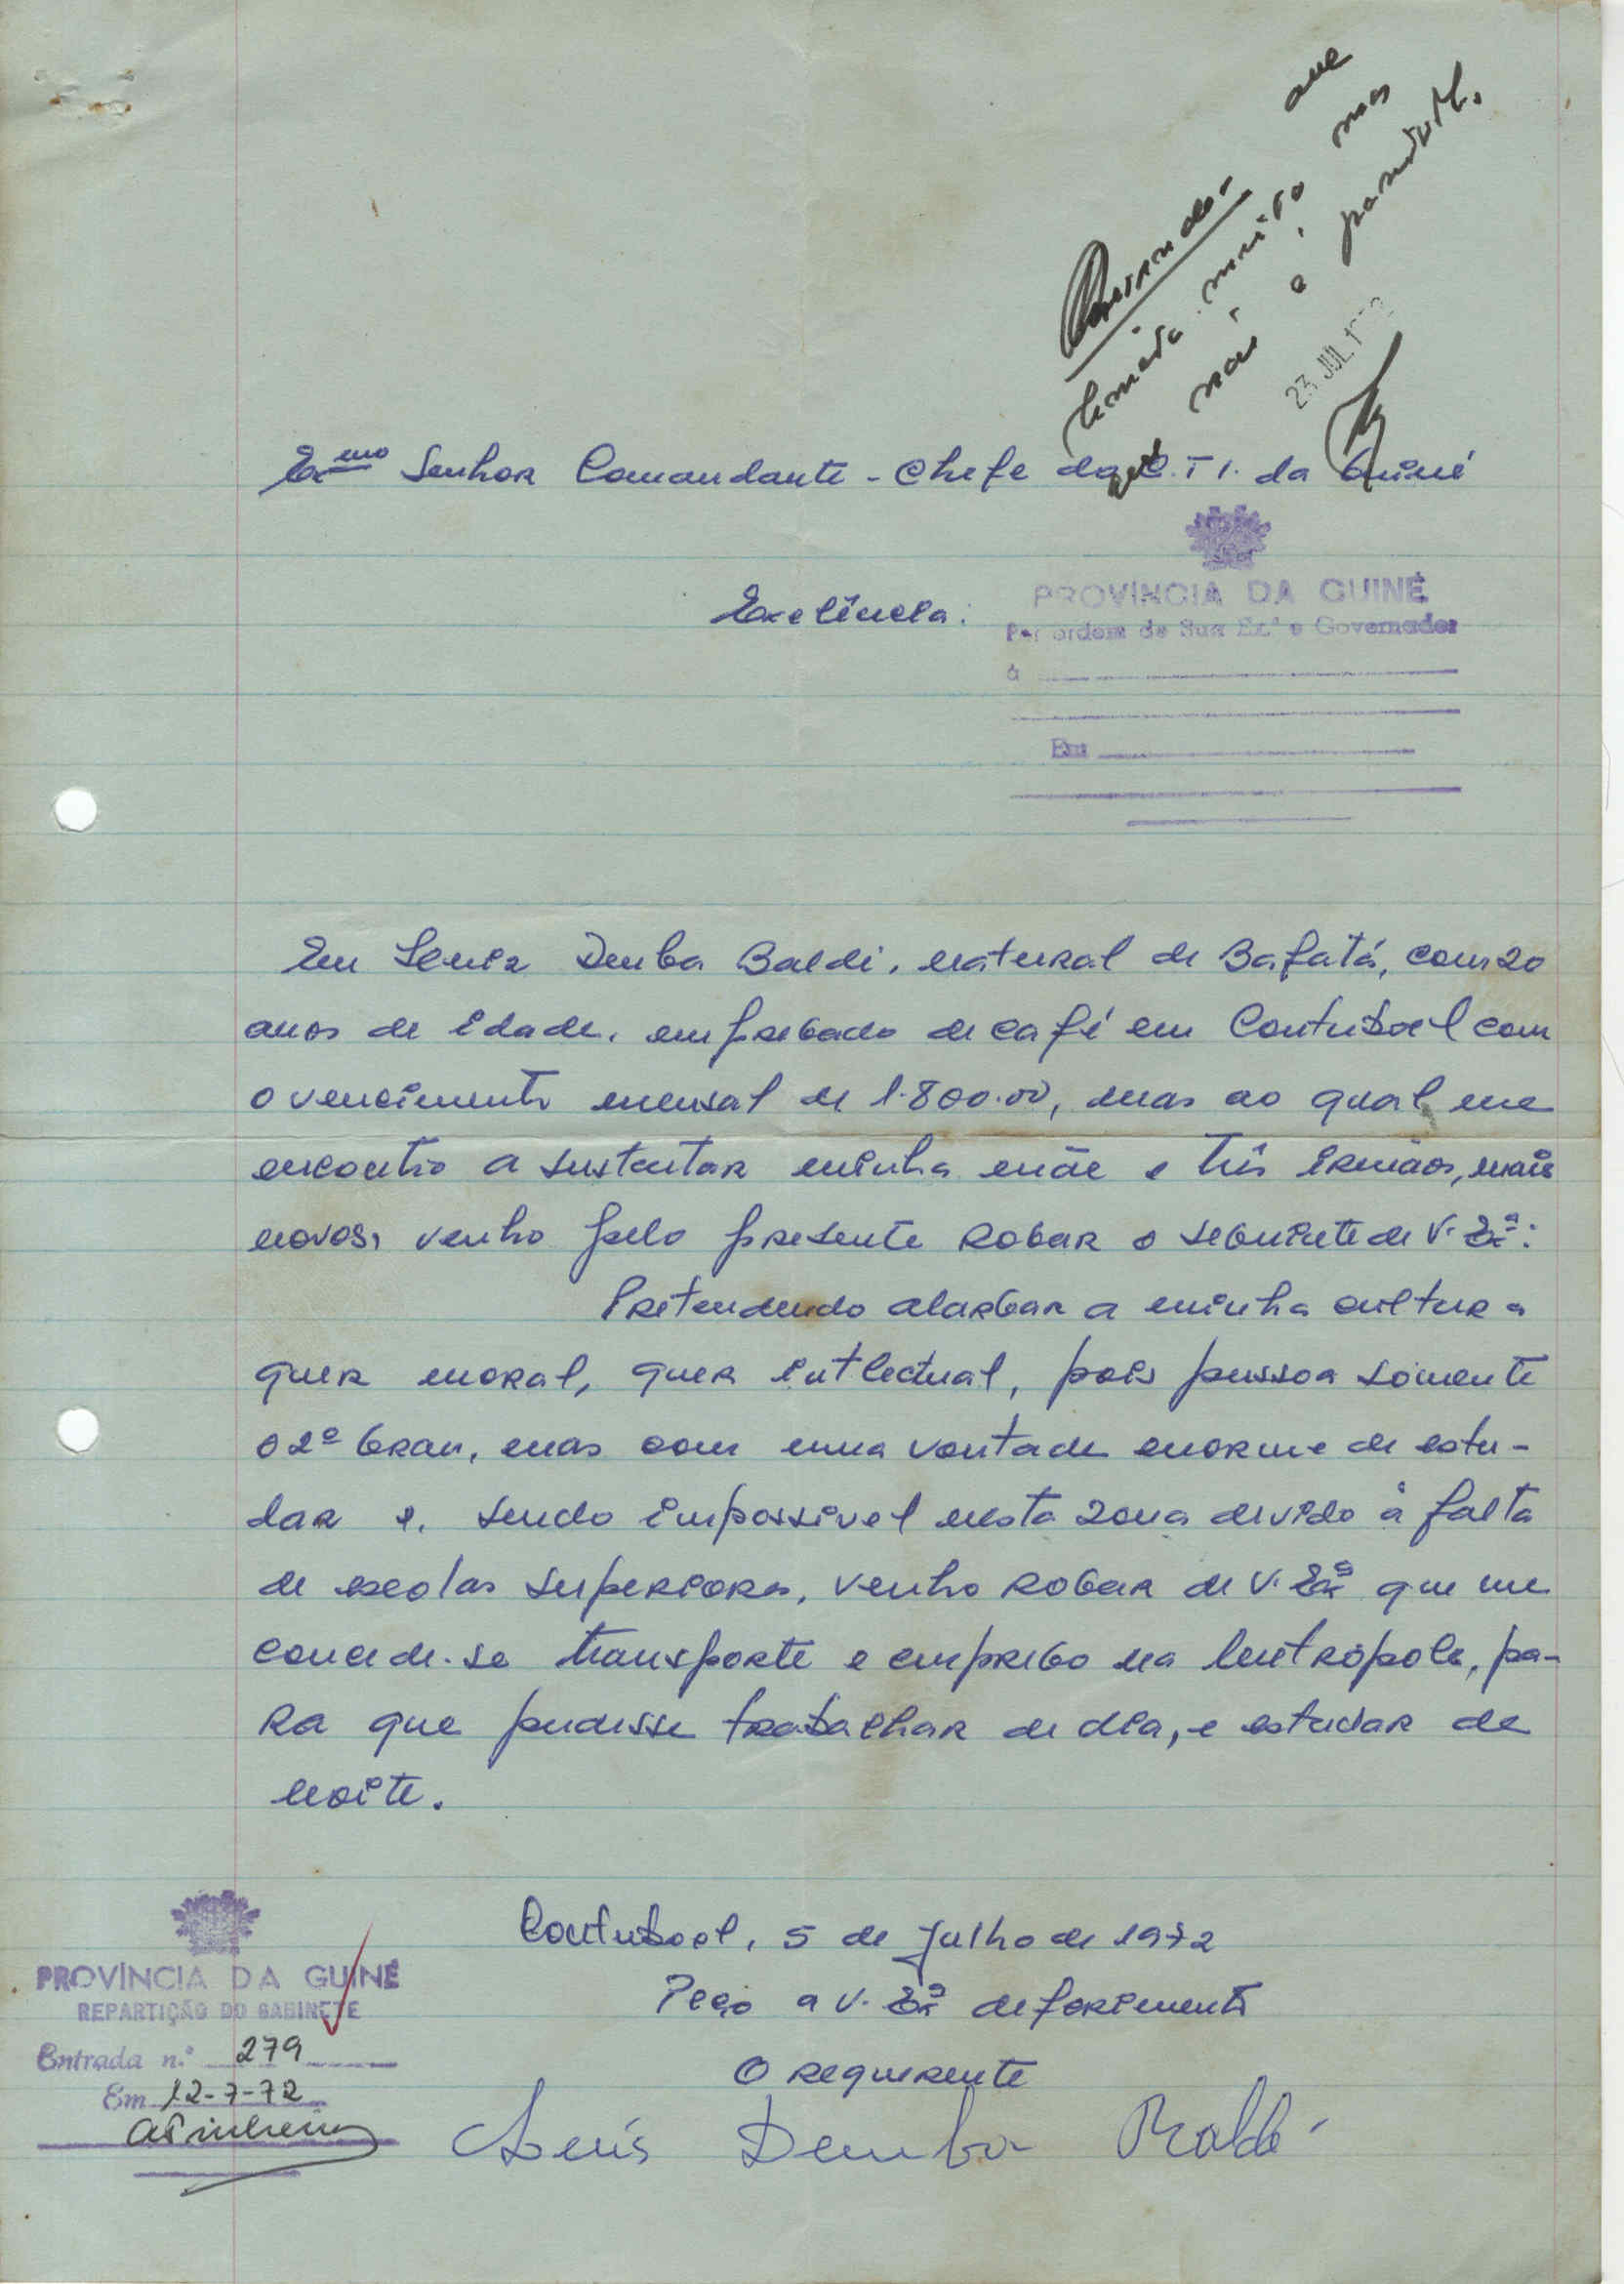 que
lamento muito mas
não é possível.
23 JUL 197
Exmo Senhor Comandante - Chefe do C.T I. da Guiné
PROVÍNCIA DA GUINÉ
Por ordem de Sua Ex.ª o Governador
à
Em
Exelência:
Eu Luiz Demba Baldé, natural de Bafatá, com 20
anos de idade, empregado de café em Contuboel com
o vencimento mensal de 1.800.00, mas ao qual me
encontro a sustentar minha mãe e três irmãos, mais
novos, venho pelo presente rogar o seguinte de V. Exª:
Pretendendo alargar a minha cultura
quer moral, quer intlectual, pois pussoa sómente
o 2º Grau, mas com uma vontade enorme de estu-
dar e, sendo impossivel nesta zona devido à falta
de escolas superiores, venho rogar de V. Exª que me
concede-se transporte e emprego na Metrópole, pa-
ra que pudesse trabalhar de dia, e estudar de
noite.
Contuboel, 5 de Julho de 1972
Peço a V. Exª deforimento
O requerente
Luís Demba Baldé
PROVÍNCIA DA GUINÉ
REPARTIÇÃO DO GABINETE
Entrada n.º 279
Em 12-7-72